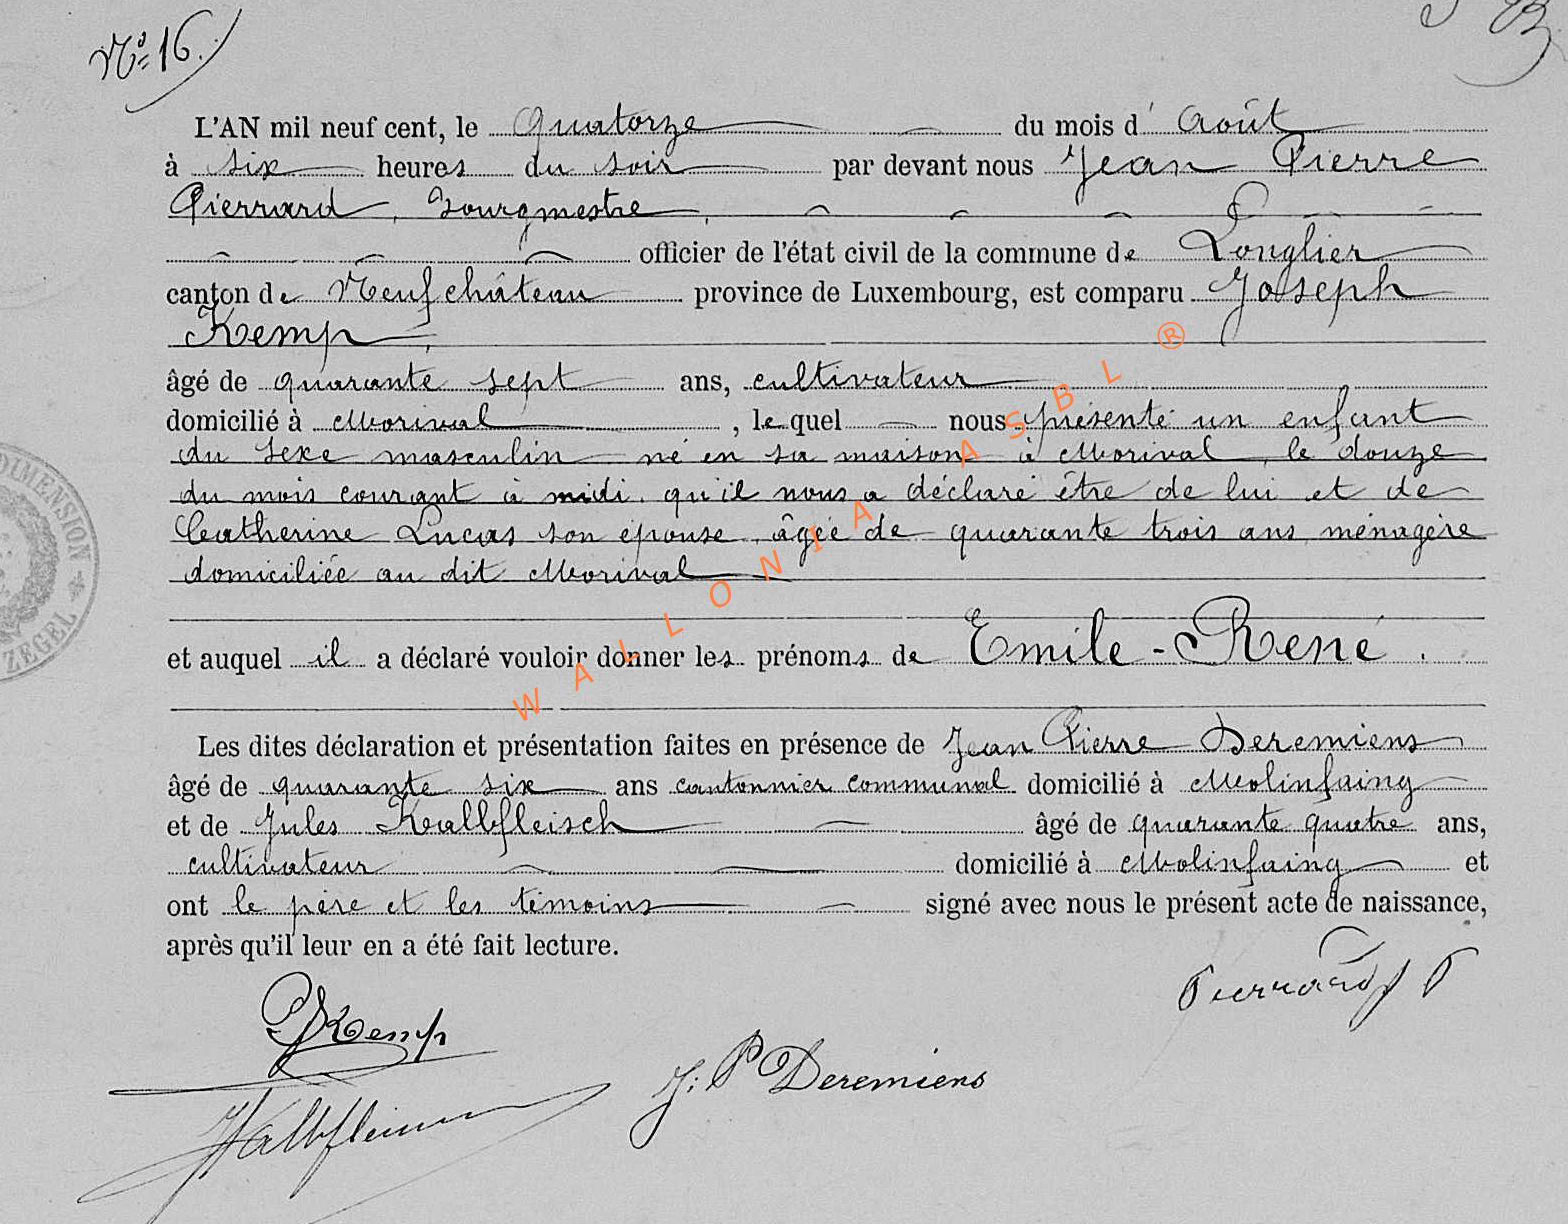 Nº 16.
L'AN mil neuf cent, le Quatorze du mois d' Août
à six heures du soir par devant nous Jean Pierre
Pierrard, bourgmestre,
officier de l'état civil de la commune de Longlier
canton de Neufchâteau province de Luxembourg, est comparu Joseph
Kemp,
âgé de quarante sept ans, cultivateur
domicilié à Morival, lequel nous présente un enfant
du sexe masculin né en sa maison à Morival, le douze
du mois courant à midi. qu'il nous a déclaré être de lui et de
Catherine Lucas son épouse, âgée de quarante trois ans, ménagère
domiciliée au dit Morival
et auquel il a déclaré vouloir donner les prénoms de Emile - René.
Les dites déclaration et présentation faites en présence de Jean Pierre Deremiens
âgé de quarante six ans cantonnier communal domicilié à Molinfaing
et de Jules Kalbfleisch âgé de quarante quatre ans,
cultivateur domicilié à Molinfaing et
ont le père et les témoins signé avec nous le présent acte de naissance,
après qu'il leur en a été fait lecture.
Pierrard J P
J Kemp
J. P Deremiens
Kalbfleisch
DIMENSION
ZEGEL
WALLONIA ASBL ®